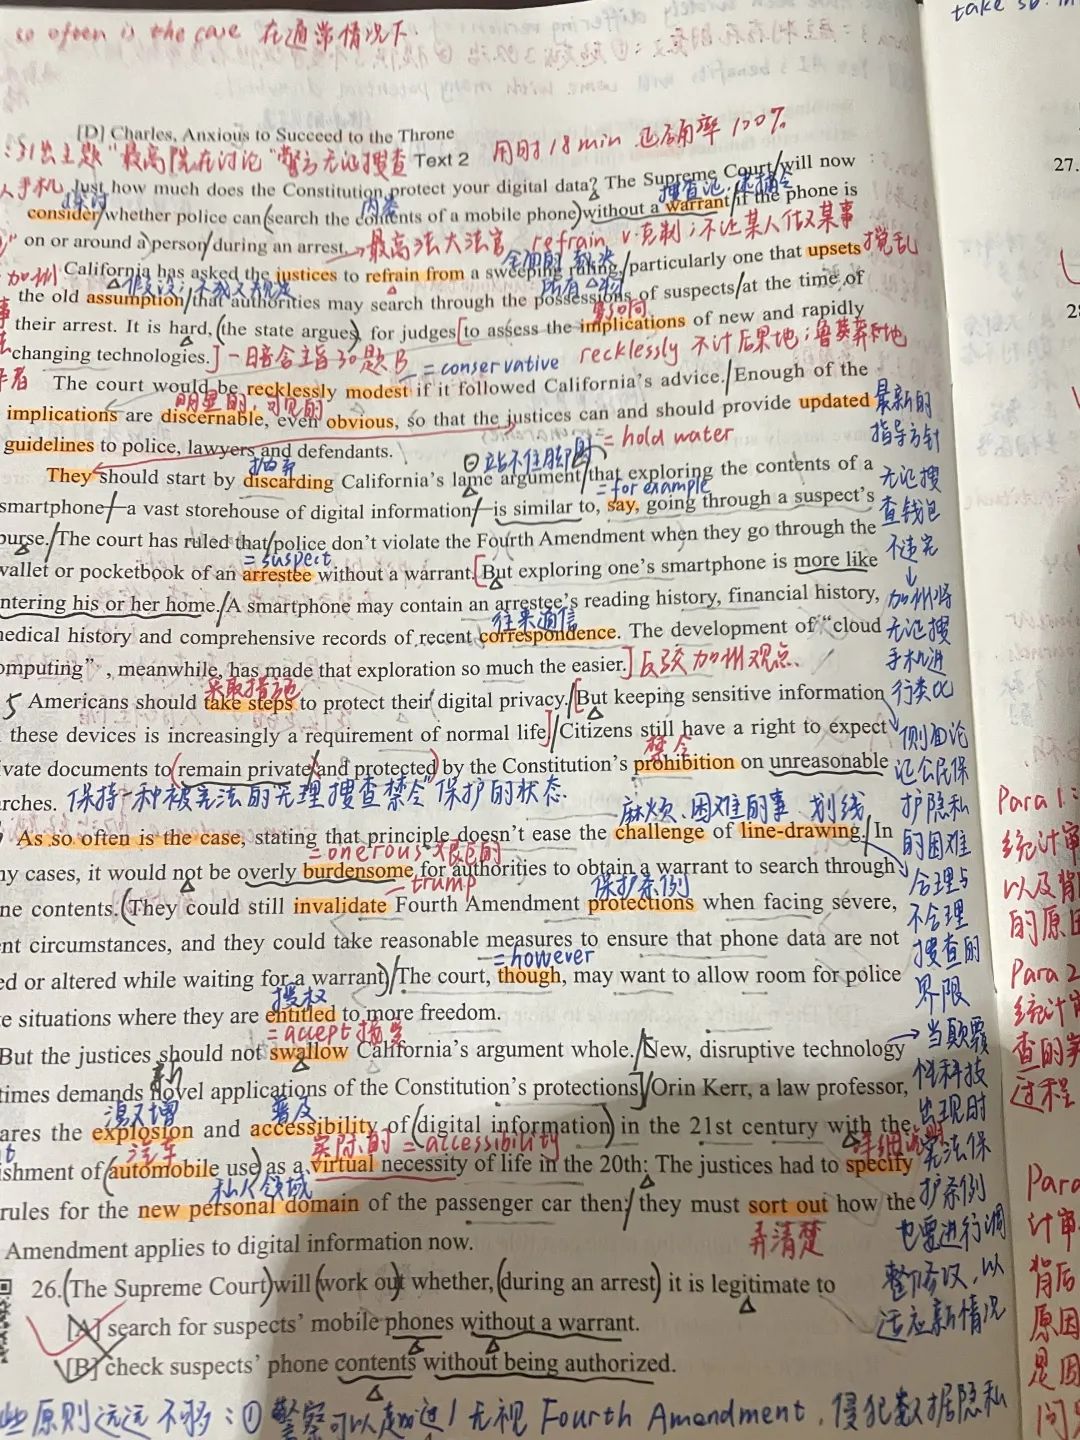 take sb. in
so often is the case 在通常情况下
[D] Charles, Anxious to Succeed to the Throne
"最高院在讨论"警方无证搜查 Text 2 用时18min 正确率100%
手机 Just how much does the Constitution protect your digital data? The Supreme Court will now
探讨 内容 搜查证;逮捕令
consider whether police can search the contents of a mobile phone without a warrant if the phone is
on or around a person during an arrest. →最高法大法官 refrain v.克制;不让某人做某事
全面的 裁决 搅乱
加州 California has asked the justices to refrain from a sweeping ruling, particularly one that upsets
所有物
the old assumption that authorities may search through the possessions of suspects at the time of
影响
their arrest. It is hard, (the state argues), for judges [to assess the implications of new and rapidly
changing technologies.] 暗含主旨30题B recklessly 不计后果地;鲁莽地
= conservative
The court would be recklessly modest if it followed California's advice. Enough of the
明显的,可见的
implications are discernable, even obvious, so that the justices can and should provide updated 最新的
指导方针
guidelines to police, lawyers and defendants. = hold water
抛弃 站不住脚的
They should start by discarding California's lame argument that exploring the contents of a
= for example
smartphone — a vast storehouse of digital information — is similar to, say, going through a suspect's
purse. The court has ruled that police don't violate the Fourth Amendment when they go through the
= suspect
wallet or pocketbook of an arrestee without a warrant. [But exploring one's smartphone is more like
ntering his or her home. A smartphone may contain an arrestee's reading history, financial history,
往来通信
medical history and comprehensive records of recent correspondence. The development of "cloud
omputing", meanwhile, has made that exploration so much the easier.] 反驳加州观点
无证搜
查钱包
不违宪
↓
加州将
无证搜
手机进
行类比
采取措施
5 Americans should take steps to protect their digital privacy. [But keeping sensitive information
these devices is increasingly a requirement of normal life.] Citizens still have a right to expect
禁令
vate documents to (remain private and protected) by the Constitution's prohibition on unreasonable
arches. 保持一种被宪法的无理搜查禁令保护的状态
侧面论
证公民保
护隐私
的困难
麻烦、困难的事 划线
As so often is the case, stating that principle doesn't ease the challenge of line-drawing. In
= onerous 艰巨的
ny cases, it would not be overly burdensome for authorities to obtain a warrant to search through
= trump 保护条例
ne contents. (They could still invalidate Fourth Amendment protections when facing severe,
nt circumstances, and they could take reasonable measures to ensure that phone data are not
= however
ed or altered while waiting for a warrant) The court, though, may want to allow room for police
授权
e situations where they are entitled to more freedom.
合理与
不合理
搜查的
界限
= accept
But the justices should not swallow California's argument whole. [New, disruptive technology
新
times demands novel applications of the Constitution's protections.] Orin Kerr, a law professor,
激增 普及
ares the explosion and accessibility of (digital information) in the 21st century with the
汽车 实际的 = accessibility
ishment of (automobile use) as a virtual necessity of life in the 20th: The justices had to specify
私人领域
rules for the new personal domain of the passenger car then; they must sort out how the
弄清楚
Amendment applies to digital information now.
→当颠覆
性科技
出现时
宪法保
护条例
也要进行调
整修改,以
适应新情况
26. (The Supreme Court) will (work out) whether, (during an arrest) it is legitimate to
[A] search for suspects' mobile phones without a warrant.
[B] check suspects' phone contents without being authorized.
些原则远远不够:① 警察可以越过/无视 Fourth Amendment, 侵犯数据隐私
27.
Para 1:
统计审
以及背
的原因
Para 2
统计审
查的
过程
Para
计审
背后
原因
是因